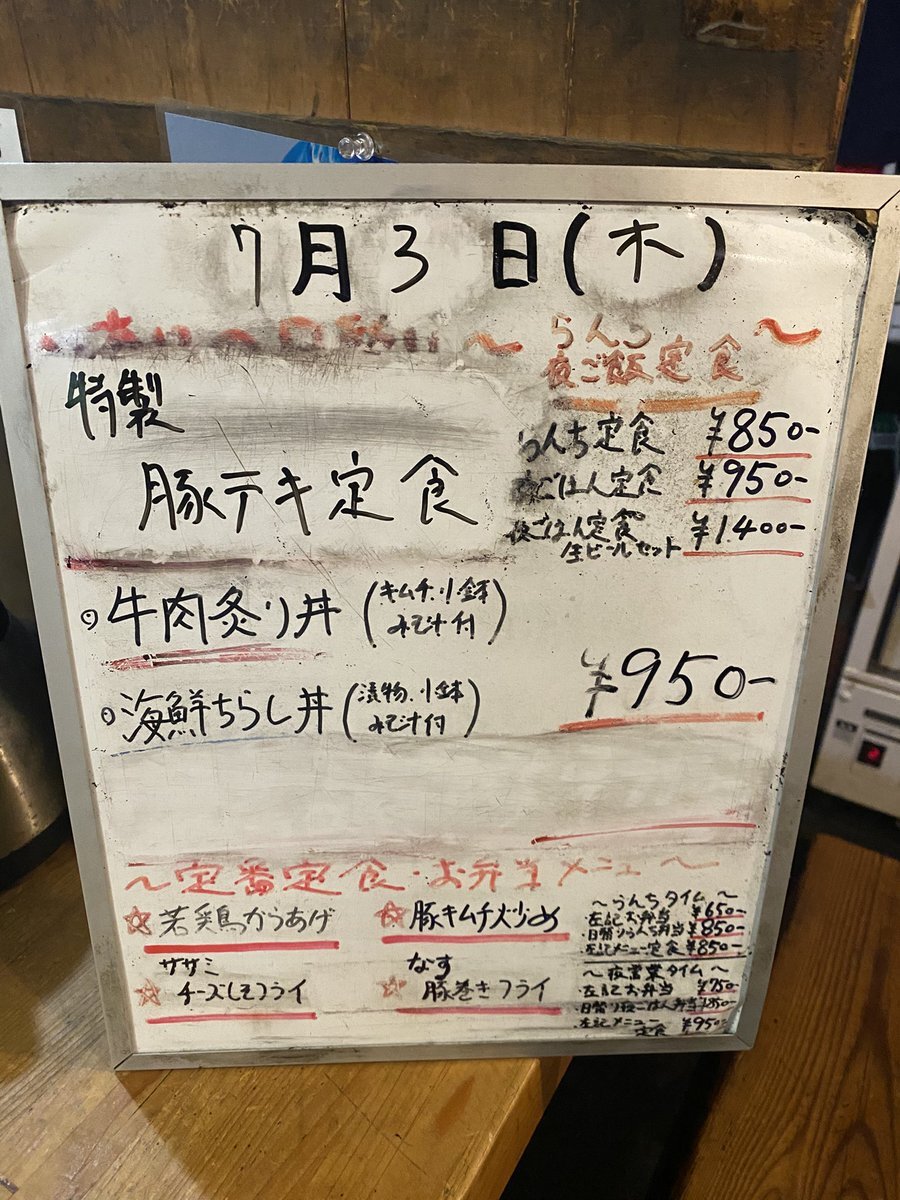 7月3日(木)
～らんち
夜ご飯定食～
特製
豚テキ定食
らんち定食 ¥850-
夜ごはん定食 ¥950-
夜ごはん定食
生ビールセット ¥1400-
◎牛肉炙り丼(キムチ、小鉢
みそ汁付)
◎海鮮ちらし丼(漬物、小鉢
みそ汁付)
¥950-
～定番定食・お弁当メニュー～
☆若鶏からあげ
☆豚キムチ炒め
ササミ
☆チーズしそフライ
なす
☆豚巻きフライ
～らんちタイム～
・左記お弁当 ¥650-
・日替りらんち弁当 ¥850-
・左記メニュー定食 ¥850-
～夜営業タイム～
・左記お弁当 ¥750-
・日替り夜ごはん弁当 ¥850-
・左記メニュー
定食 ¥950-